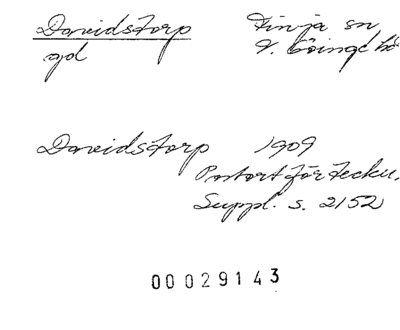 Davidstorp Finja sn
gd V. Göinge hd
Davidstorp 1909
Postortförteckn.
Suppl. s. 2152
00029143